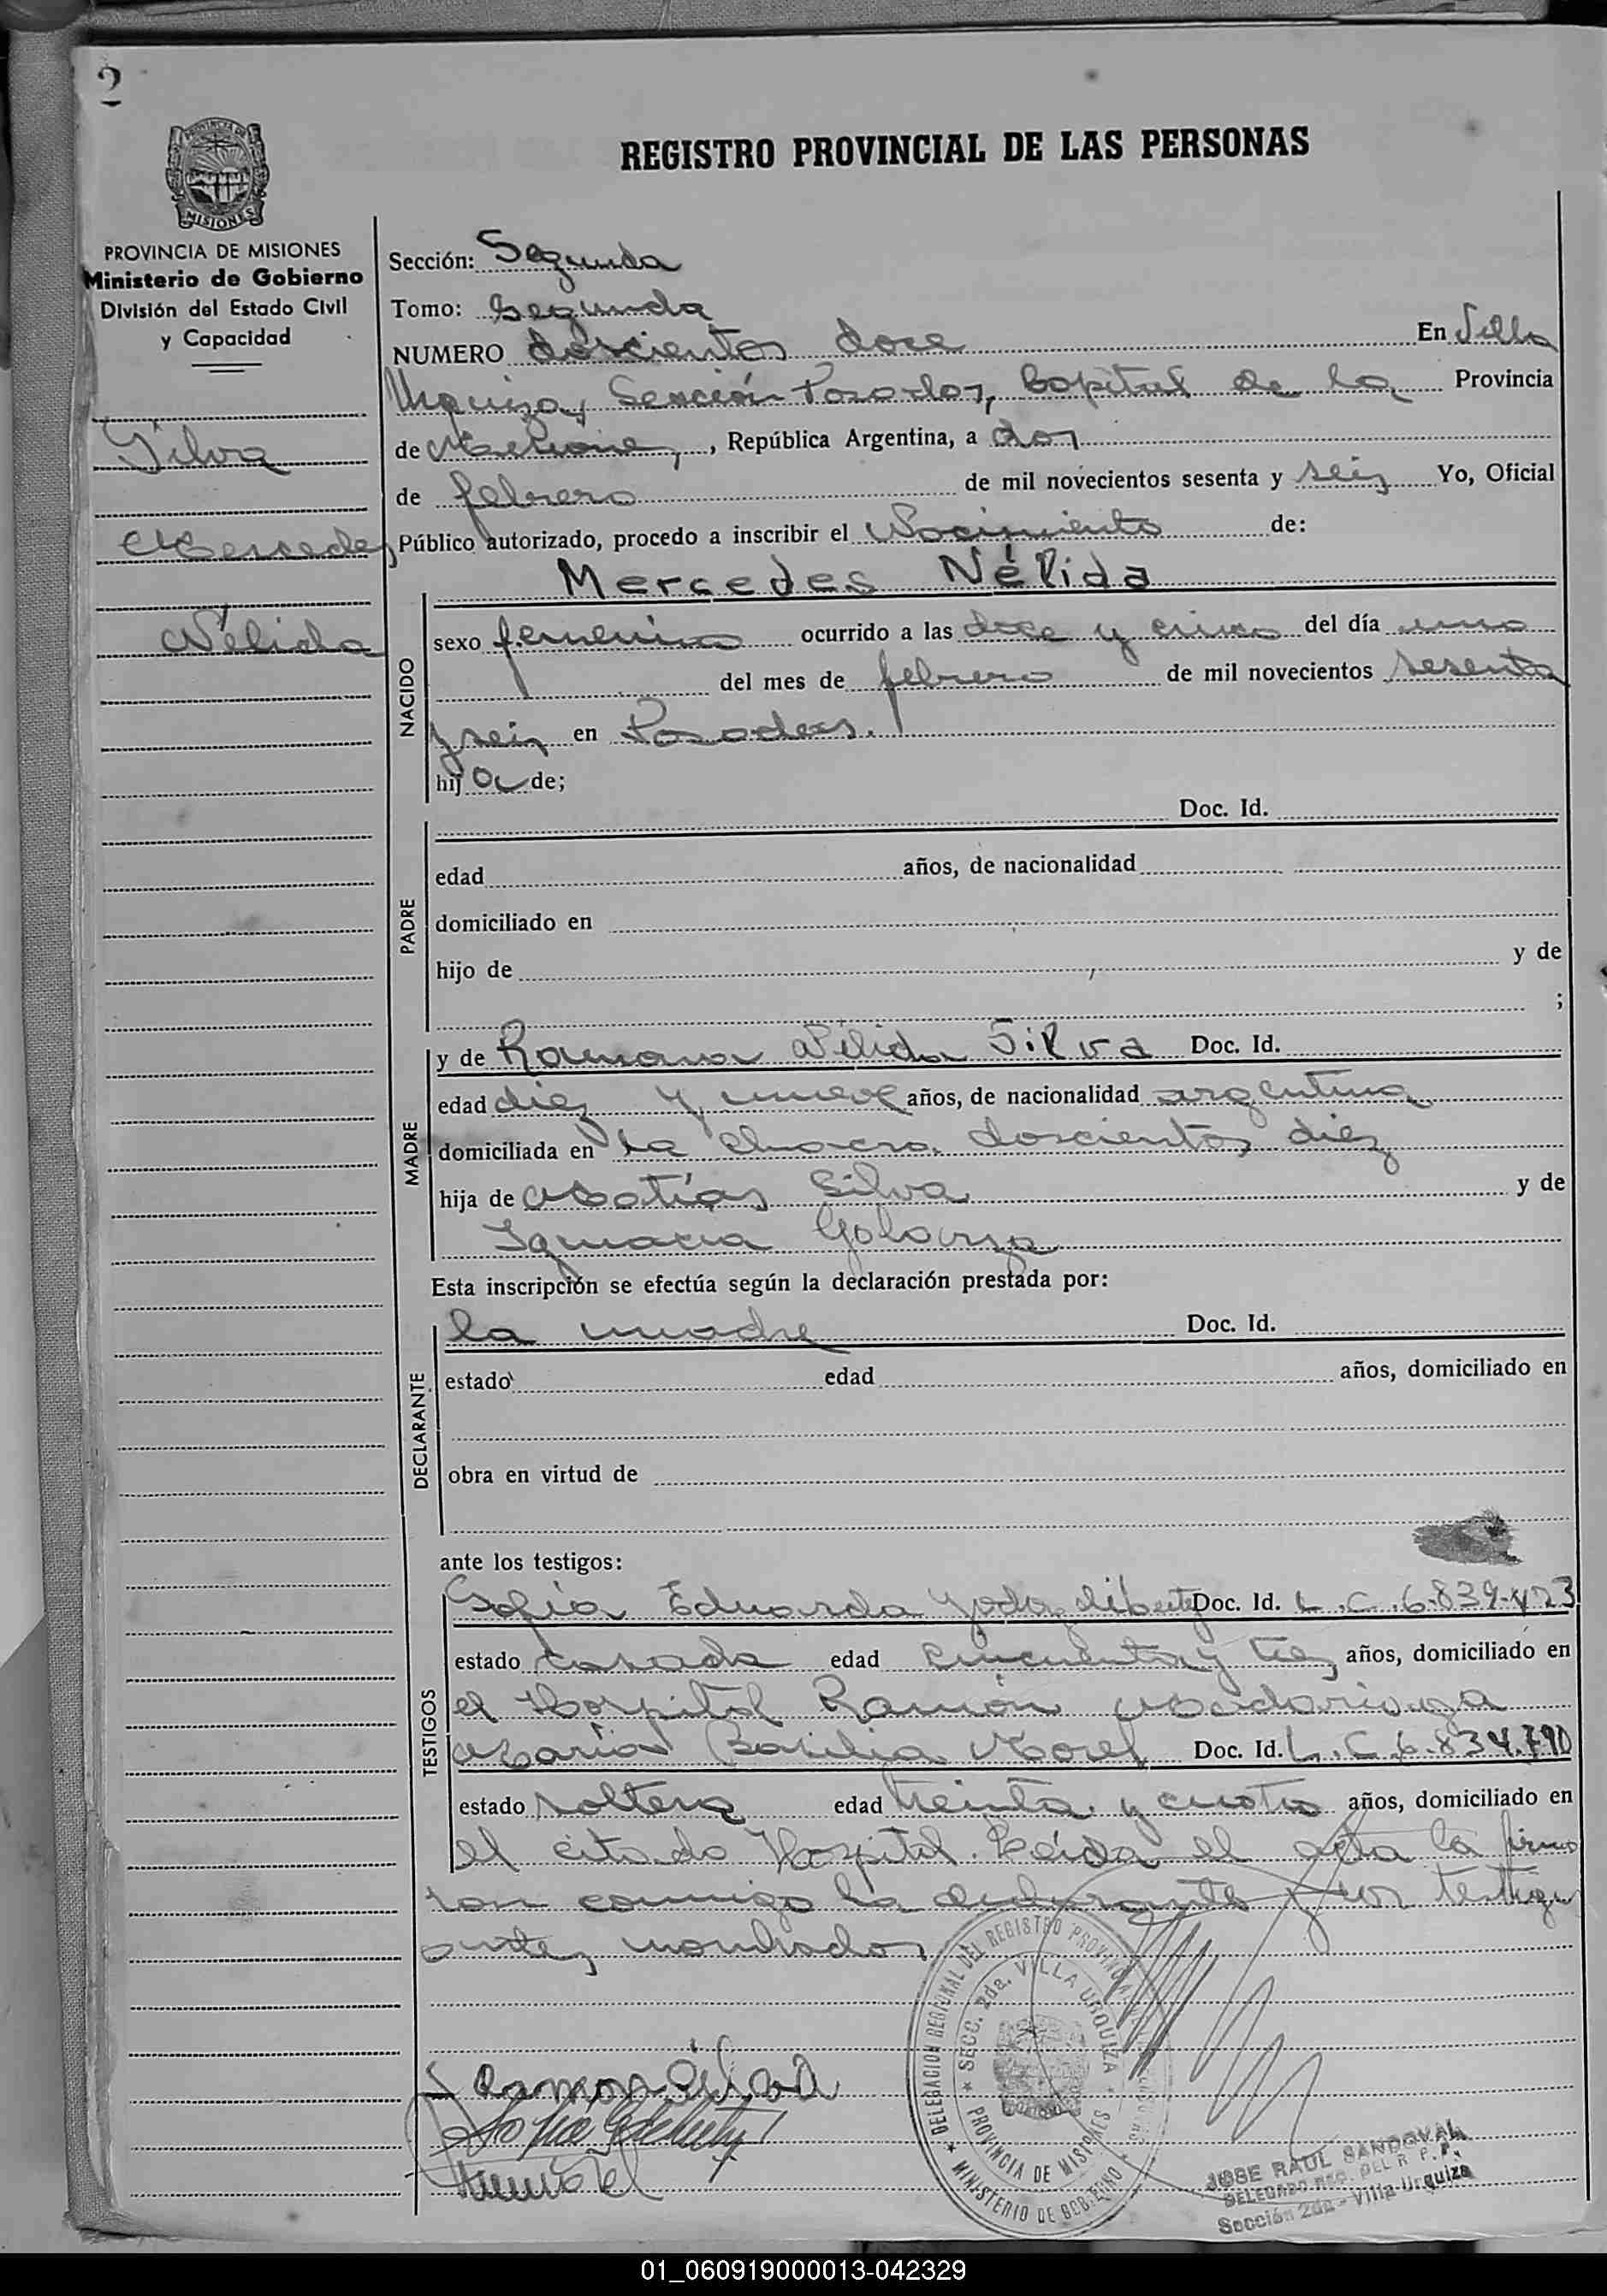 2
REGISTRO PROVINCIAL DE LAS PERSONAS
PROVINCIA DE
MISIONES
PROVINCIA DE MISIONES
Ministerio de Gobierno
División del Estado Civil
y Capacidad
Silva
Mercedes
Nélida
Sección: Segunda
Tomo: Segunda
NUMERO doscientos doce En Villa
Urquiza, Sección Posadas, Capital de la Provincia
de Misiones, República Argentina, a dos
de febrero de mil novecientos sesenta y seis Yo, Oficial
Público autorizado, procedo a inscribir el Nacimiento de:
Mercedes Nélida
NACIDO
sexo femenino ocurrido a las doce y cinco del día uno
del mes de febrero de mil novecientos sesenta
y seis en Posadas.
hija de;
PADRE
Doc. Id.
edad años, de nacionalidad
domiciliado en
hijo de y de
;
MADRE
y de Ramona Nélida Silva Doc. Id.
edad diez y nueve años, de nacionalidad argentina
domiciliada en la chacra doscientos diez
hija de Matías Silva y de
Ignacia Golarza
Esta inscripción se efectúa según la declaración prestada por:
DECLARANTE
la madre Doc. Id.
estado edad años, domiciliado en
obra en virtud de
ante los testigos:
TESTIGOS
Sofía Eduarda Doc. Id. L.C. 6.839.423
estado casada edad cincuenta y tres años, domiciliado en
el Hospital Ramón Madariaga
María Basilia Morel Doc. Id. L.C. 6.834.790
estado soltera edad treinta y cuatro años, domiciliado en
el citado Hospital. Leída el acta la firma
ron conmigo la declarante y los testigos
antes nombrados
Ramona Silva
DELEGACION REGIONAL DEL REGISTRO PROVINCIAL
SECC. 2da. VILLA URQUIZA
PROVINCIA DE MISIONES
MINISTERIO DE GOBIERNO
JOSE RAUL SANDOVAL
DELEGADO REG. DEL R. P. P.
Sección 2da - Villa Urquiza
01_060919000013-042329